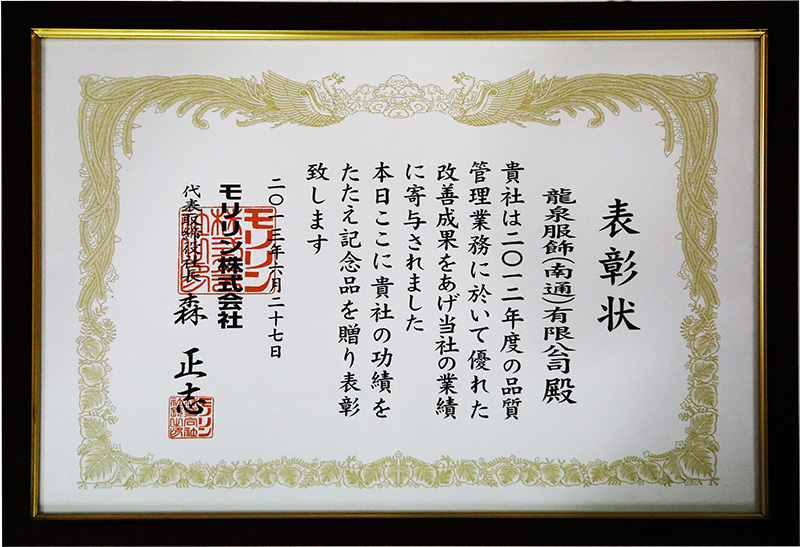 表彰状
龍泉服飾(南通)有限公司 殿
貴社は二〇一二年度の品質
管理業務に於いて優れた
改善成果をあげ当社の業績
に寄与されました
本日ここに貴社の功績を
たたえ記念品を贈り表彰
致します
二〇一三年六月二十七日
モリリン株式会社
代表取締役社長 森 正志
モリリン
モリリン